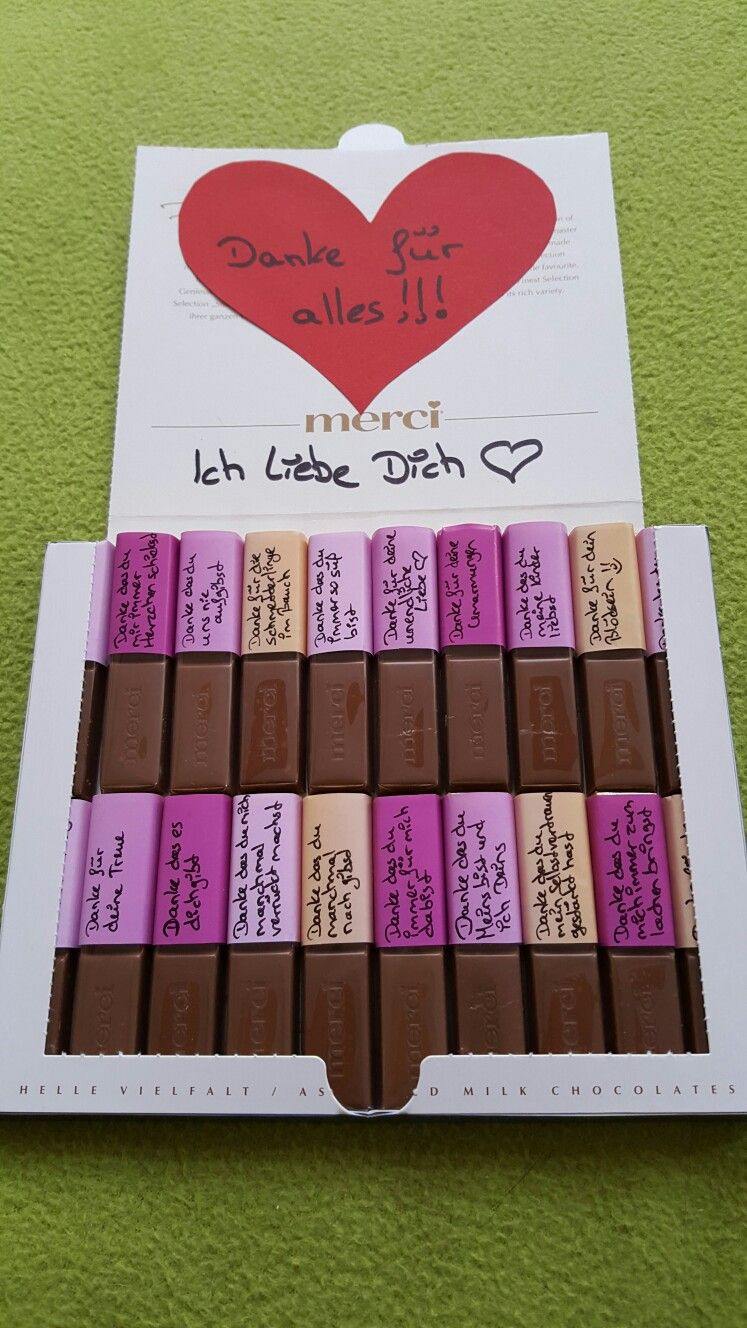 Danke für
alles!!!
merci
Ich Liebe Dich ♡
Danke das du
mir immer
Herzchen schickst
Danke das du
uns nie
aufgibst
Danke für die
schmetterlinge
im Bauch
Danke das du
immer so süß
bist
Danke für deine
unendliche
Liebe ♡
Danke für deine
Umarmungen
Danke das du
meine kinder
liebst
Danke für dein
Blödsein!!
merci
merci
merci
merci
merci
merci
merci
merci
Danke für
deine Treue
Danke das es
dich gibt
Danke das du mich
manchmal
verrückt machst
Danke das du
manchmal
nach gibst
Danke das du
immer für mich
da bist
Danke das du
Meins bist und
ich Deins
Danke das du
mein selbstvertrauen
gestärkt hast
Danke das du
mich immer zum
lachen bringst
merci
merci
merci
merci
merci
merci
merci
merci
HELLE VIELFALT / AS D MILK CHOCOLATES